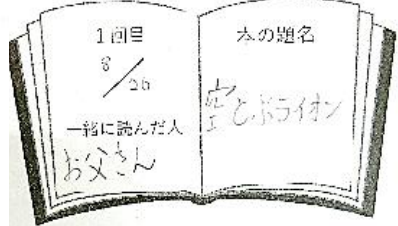 1回目
8/26
一緒に読んだ人
お父さん
本の題名
空とぶライオン